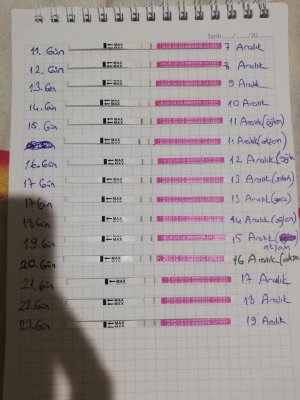 Tarih....../....../20......
11. Gün MAX 7 Aralık
12. Gün MAX 8 Aralık
13. Gün MAX 9 Aralık
14. Gün MAX 10 Aralık
15. Gün MAX 11 Aralık (öğlen)
MAX 11 Aralık (akşam)
16. Gün MAX 12 Aralık
17 Gün MAX 13 Aralık (sabah)
17. Gün MAX 13 Aralık (gece)
18 Gün MAX 14 Aralık (öğlen)
19. Gün MAX 15 Aralık
akşam
20. Gün MAX 16 Aralık
21. Gün MAX 17 Aralık
22. Gün MAX 18 Aralık
23. Gün MAX 19 Aralık